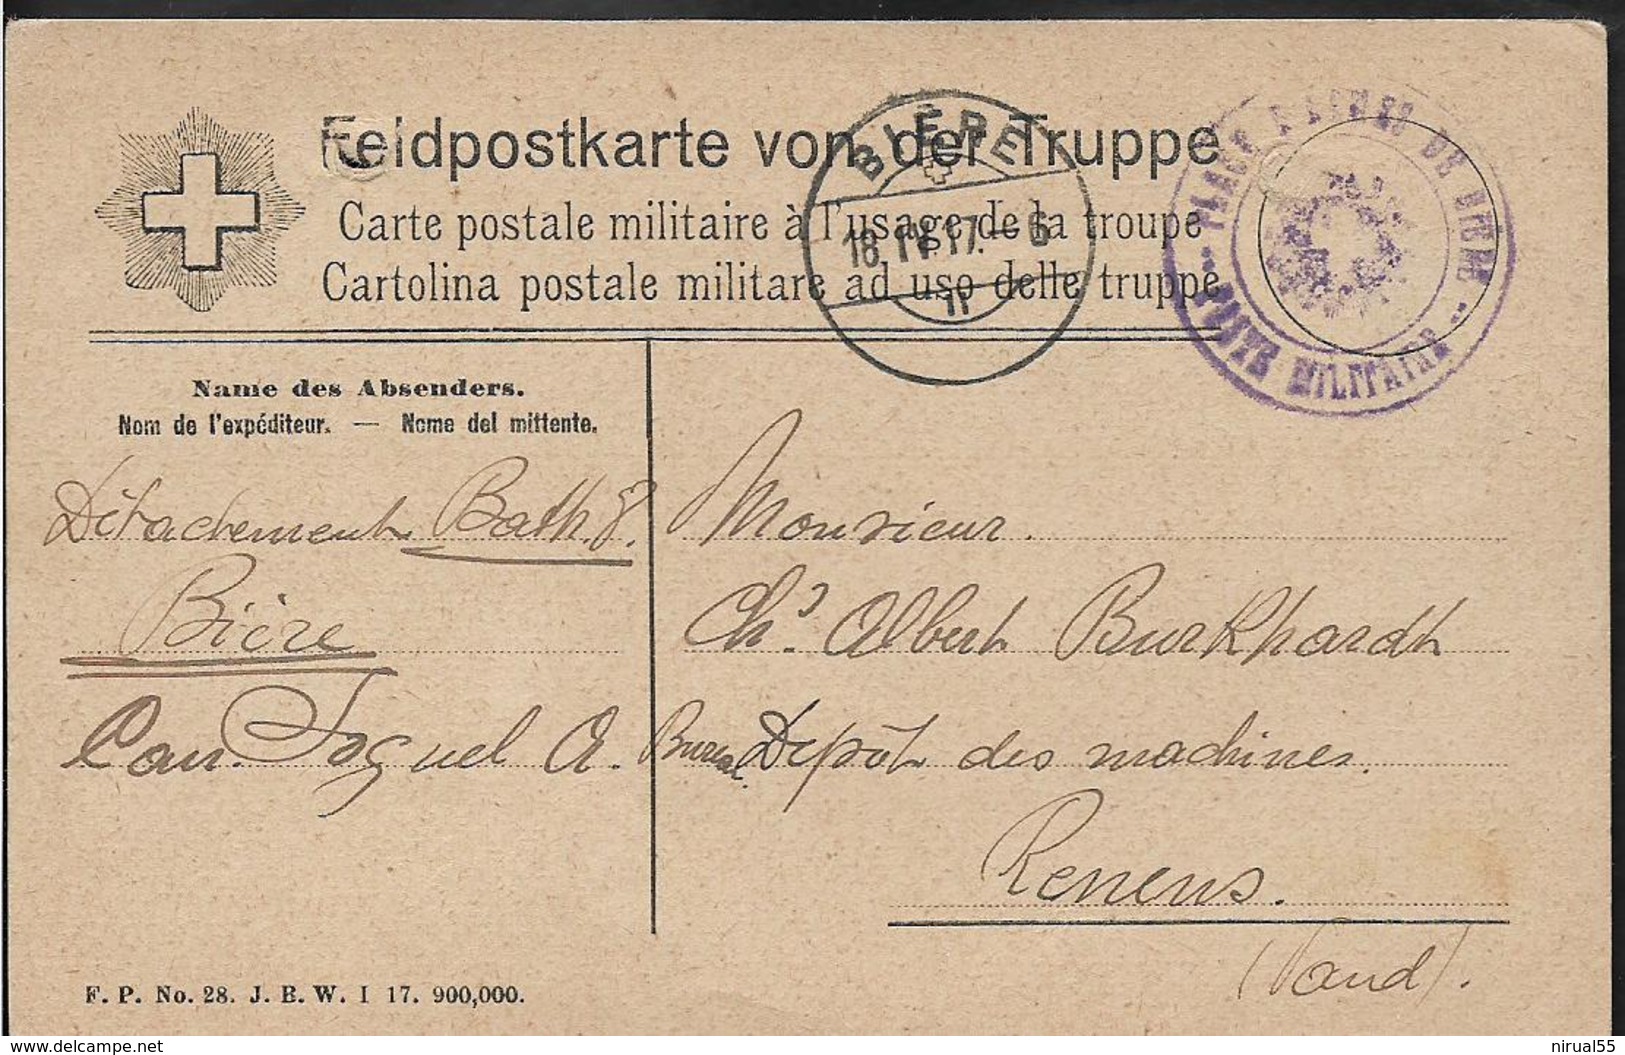 Feldpostkarte von der Truppe
Carte postale militaire à l'usage de la troupe
Cartolina postale militare ad uso delle truppe
BIÈRE
18. IV. 17. – 6
PLACE D'ARMES DE BIÈRE
POSTE MILITAIRE
Name des Absenders.
Nom de l'expéditeur. — Nome del mittente.
Détachement Batt. 8.
Bière
Can. Joguel A.
Monsieur
Chs. Albert Burkhardt
Bureau Dépôt des machines.
Renens.
(Vaud).
F. P. No. 28. J. B. W. I 17. 900,000.
www.delcampe.net
nirual55